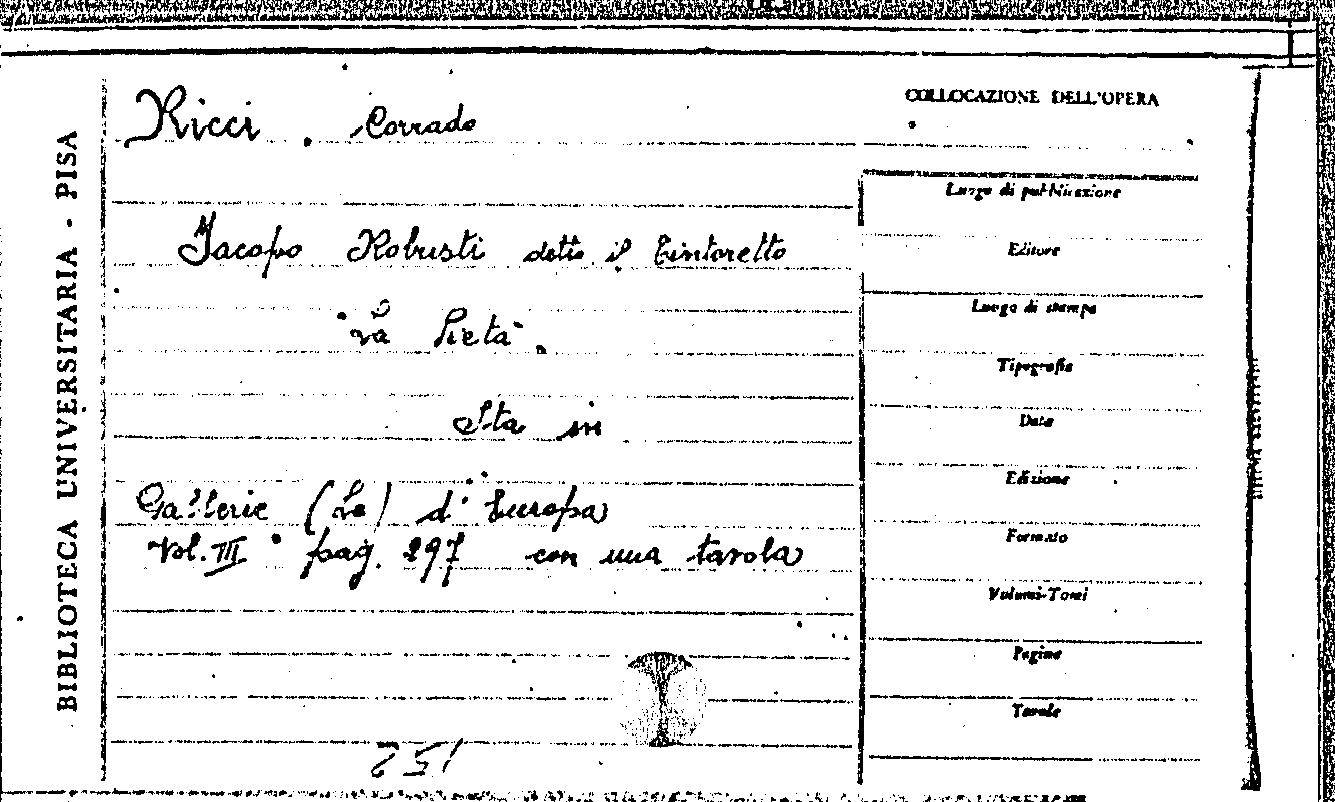 BIBLIOTECA UNIVERSITARIA - PISA
Ricci, Corrado
Jacopo Robusti detto il Tintoretto
"La Pietà".
Sta in
Gallerie (Le) d'Europa
Vol. III° pag. 297 con una tavola
COLLOCAZIONE DELL'OPERA
Luogo di pubblicazione
Editore
Luogo di stampa
Tipografia
Data
Edizione
Formato
Volumi-Tomi
Pagine
Tavole